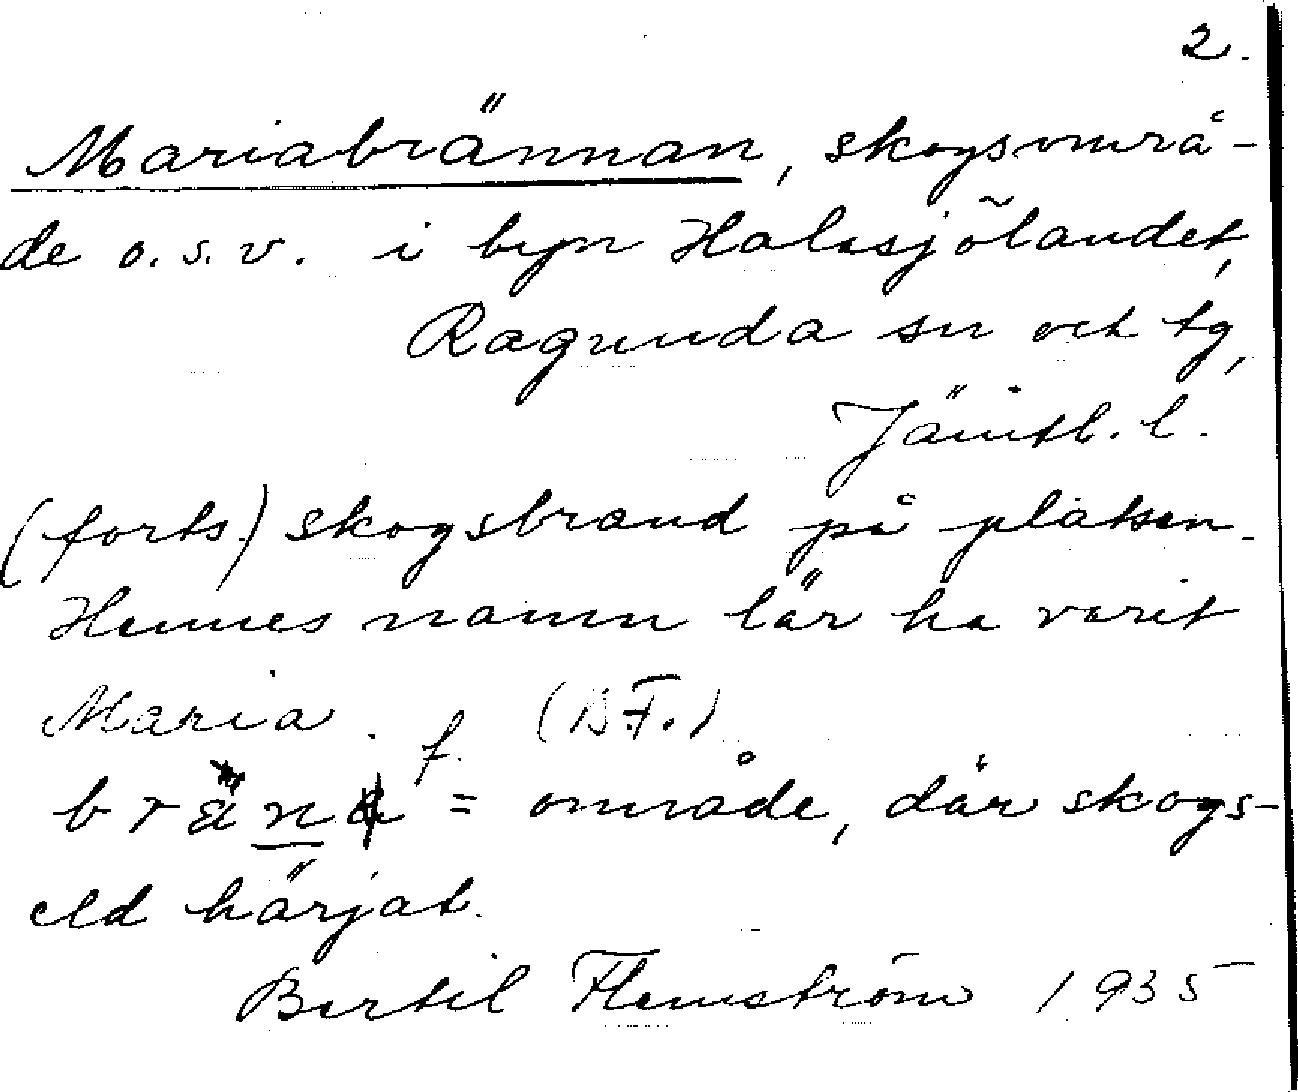 2.
Mariabrännan, skogsområ-
de o.s.v. i byn Halasjölandet,
Ragunda sn och tg,
Jämtl. l.
(forts.) skogsbrand på platsen.
Hennes namn lär ha varit
Maria. (B.F.)
brän f. = område, där skogs-
eld härjat.
Bertil Flemström 1935